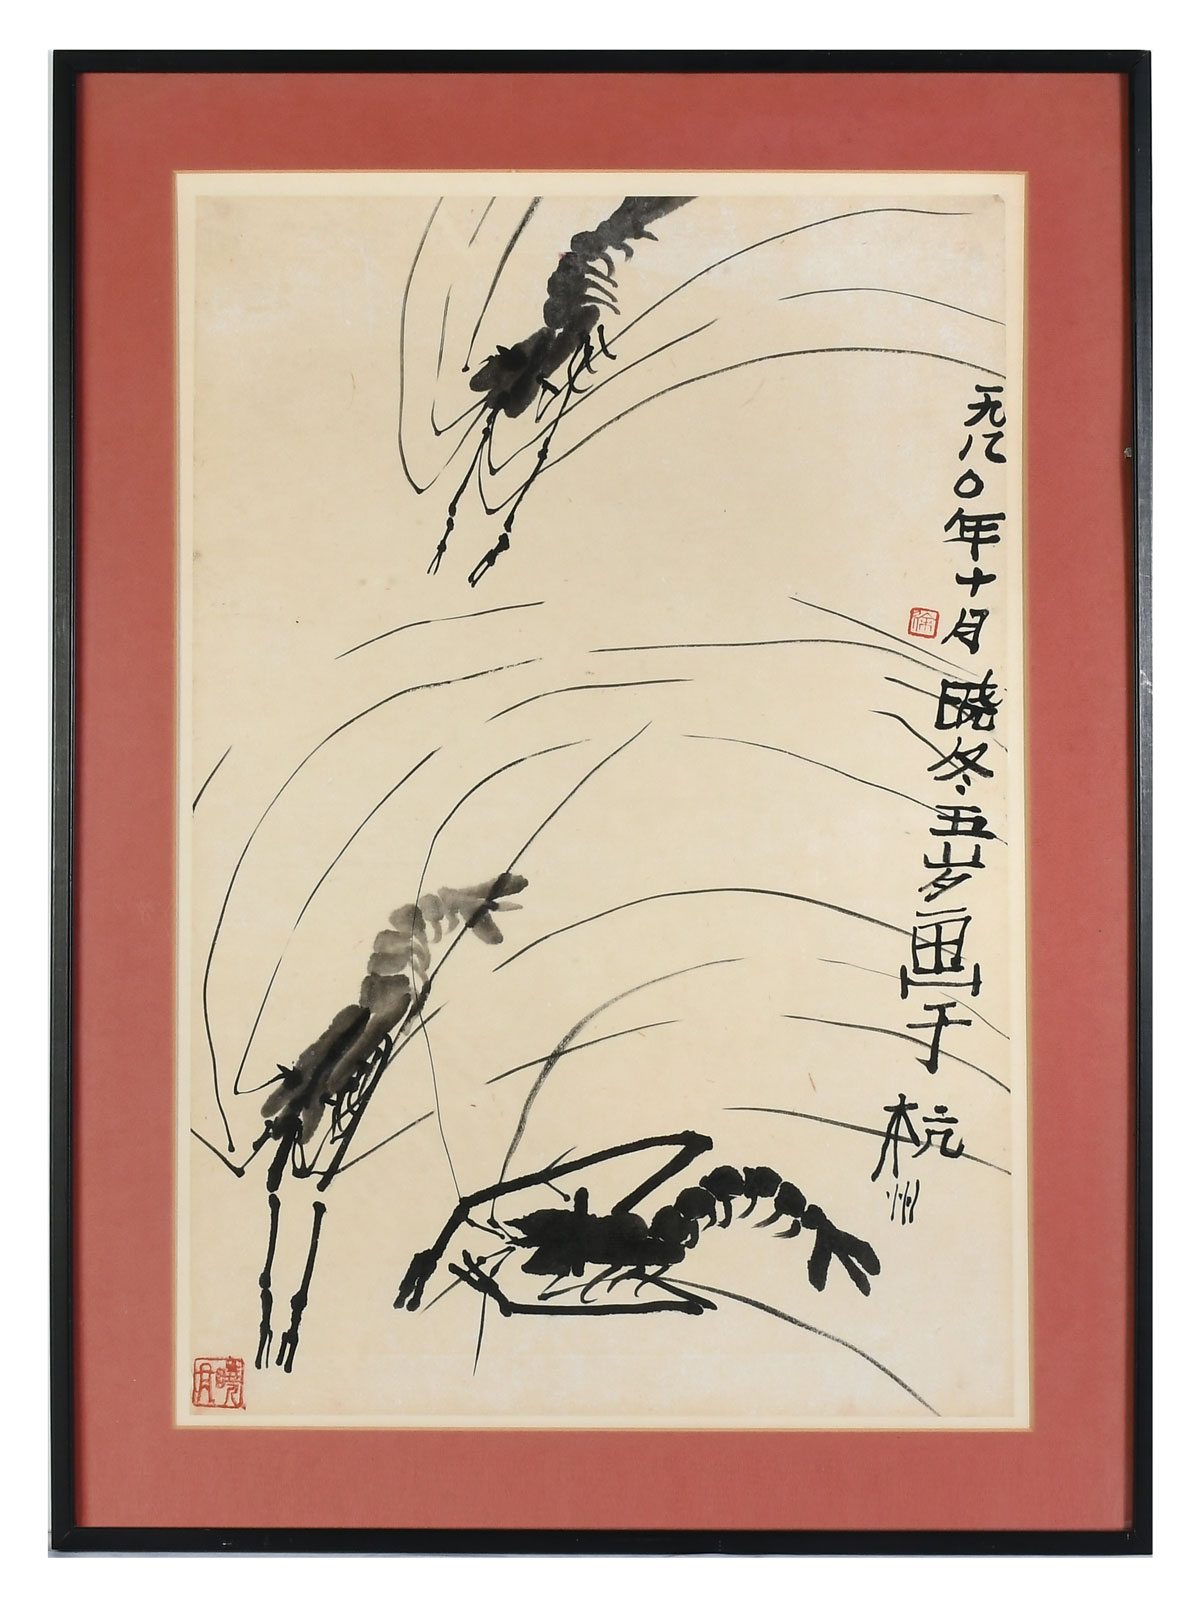 一九八〇年十月晓冬五岁画于杭州
徐